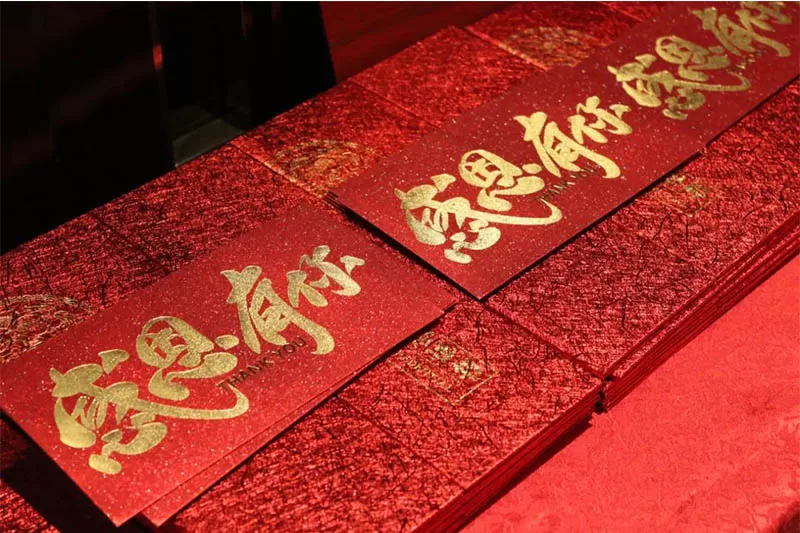 感恩有你
THANK YOU
感恩有你
THANK YOU
感恩有你